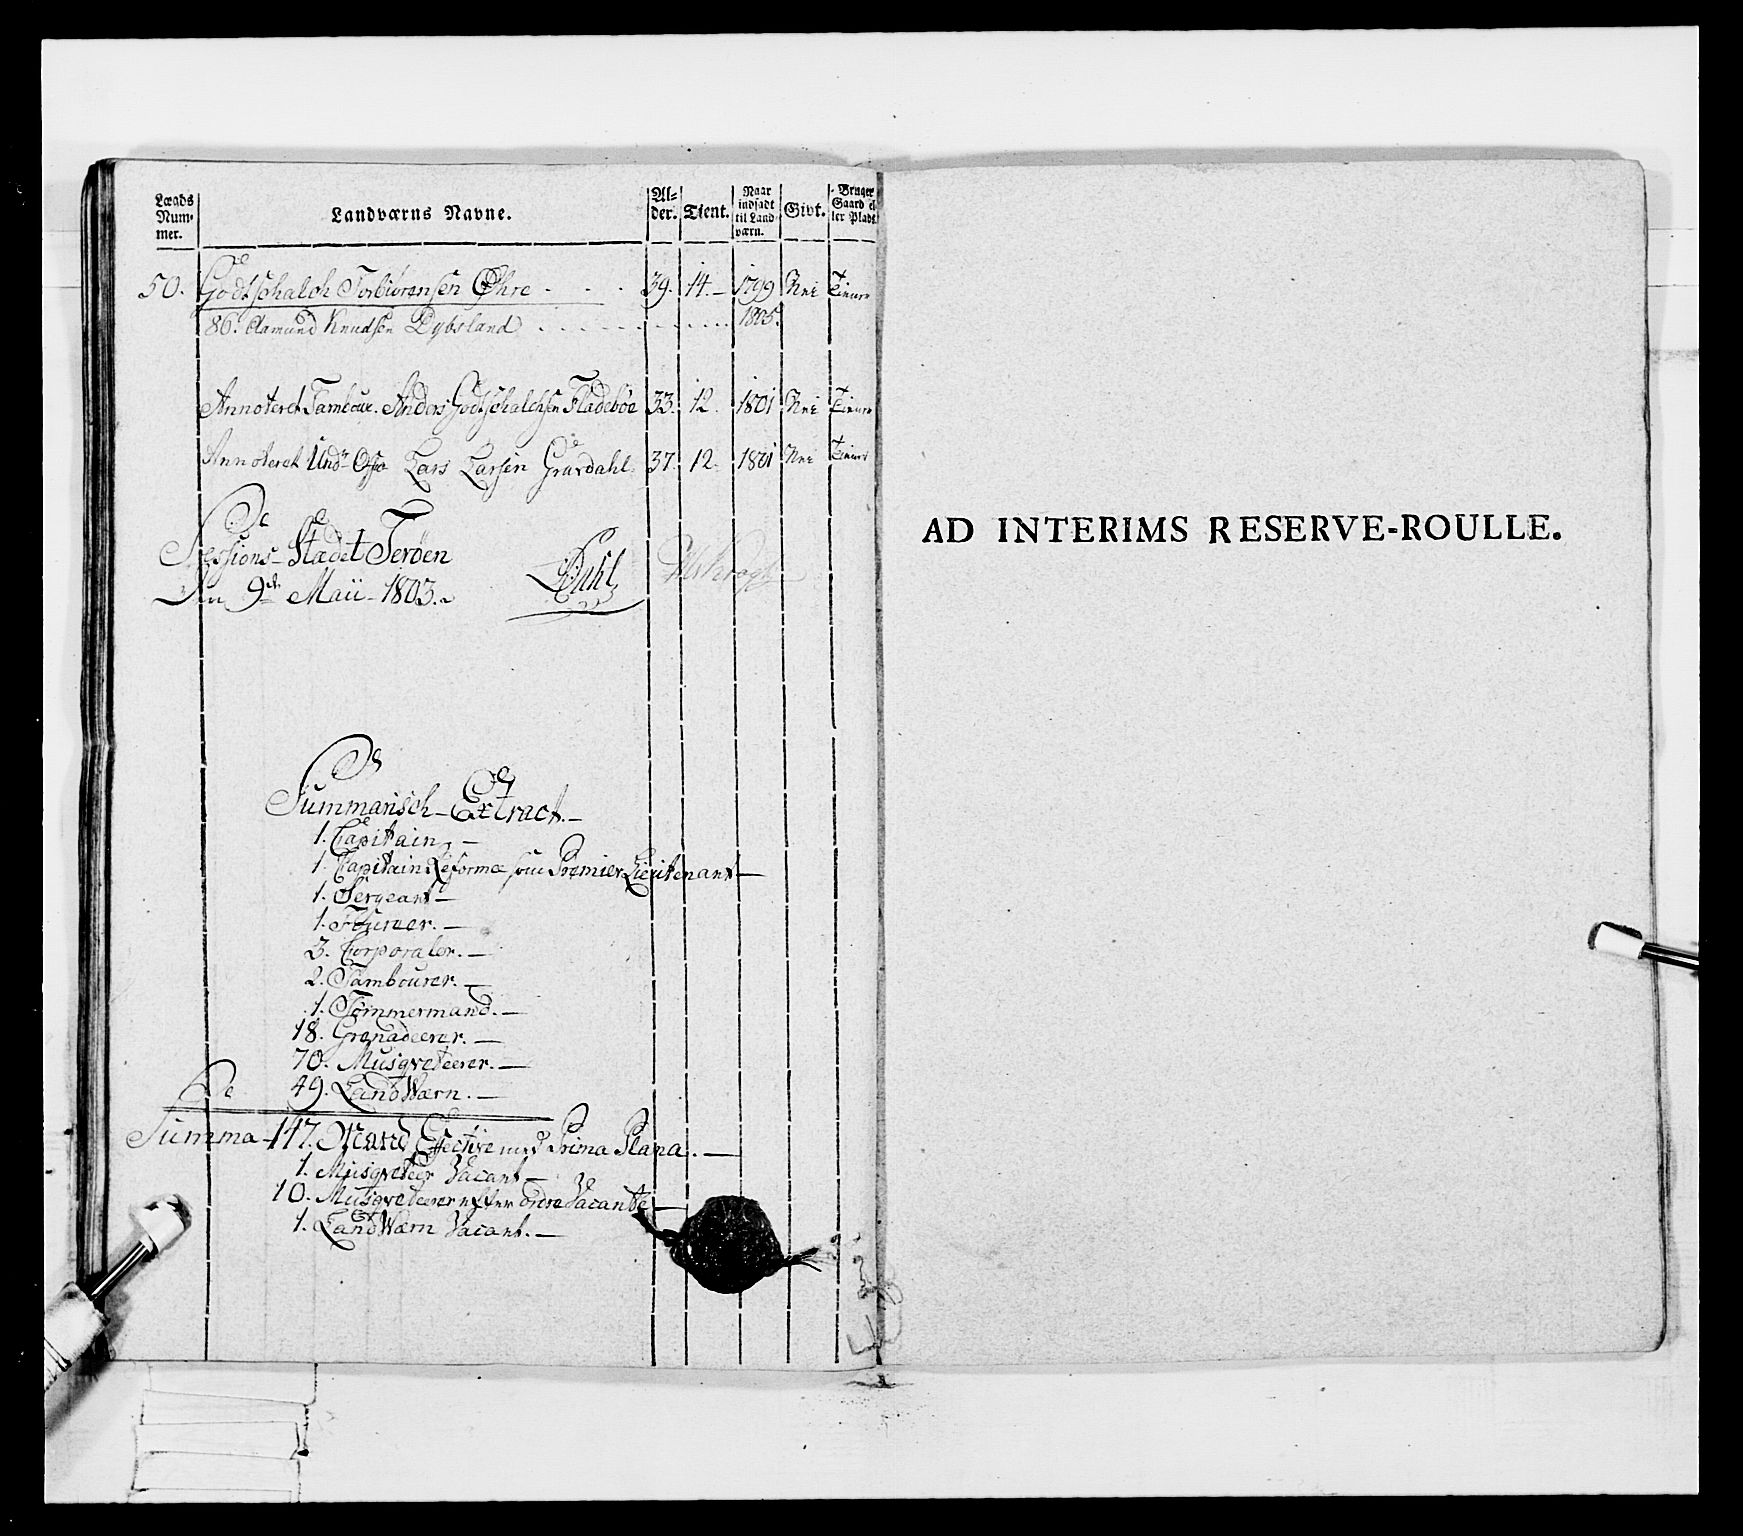 Lægds Num- mer. Landværns Navne. Al- der. Tient. Naar indsadt til Land- værn. Givt. Bruger Gaard el- ler Plads
50. Godtschalch Torbiørensen Øhre - - - 39. 14.- 1799 Nei Tiener
86. Aamund Knudsen Dybsland 1805.
Annoteret Tambour. Anders Godtschalchsen Fladebøe 33. 12. 1801 Nei Tiener
Annoteret Undr Offr Lars Larsen Grurdahl. 37. 12. 1801 Nei Tiener
Sessions-Stædet Terøen
Den 9de Maii 1803.
Dahl
Summarisch-Extract.-
1. Capitain,-
1. Capitain Reforme som Premier Lieutenant-
1. Sergeant-
1. Foureer.-
3. Corporaler.-
2. Tambourer.-
1. Tømmermand.-
18. Grenadeerer.-
70. Musqveteerer.-
49. LandWærn.-
Summa-147. Mand Effective med Prima Plana.-
1. Musqveteer Vacant-
10. Musqveteerer efter ordre Vacante-
1. LandWærn Vacant.-
AD INTERIMS RESERVE-ROULLE.